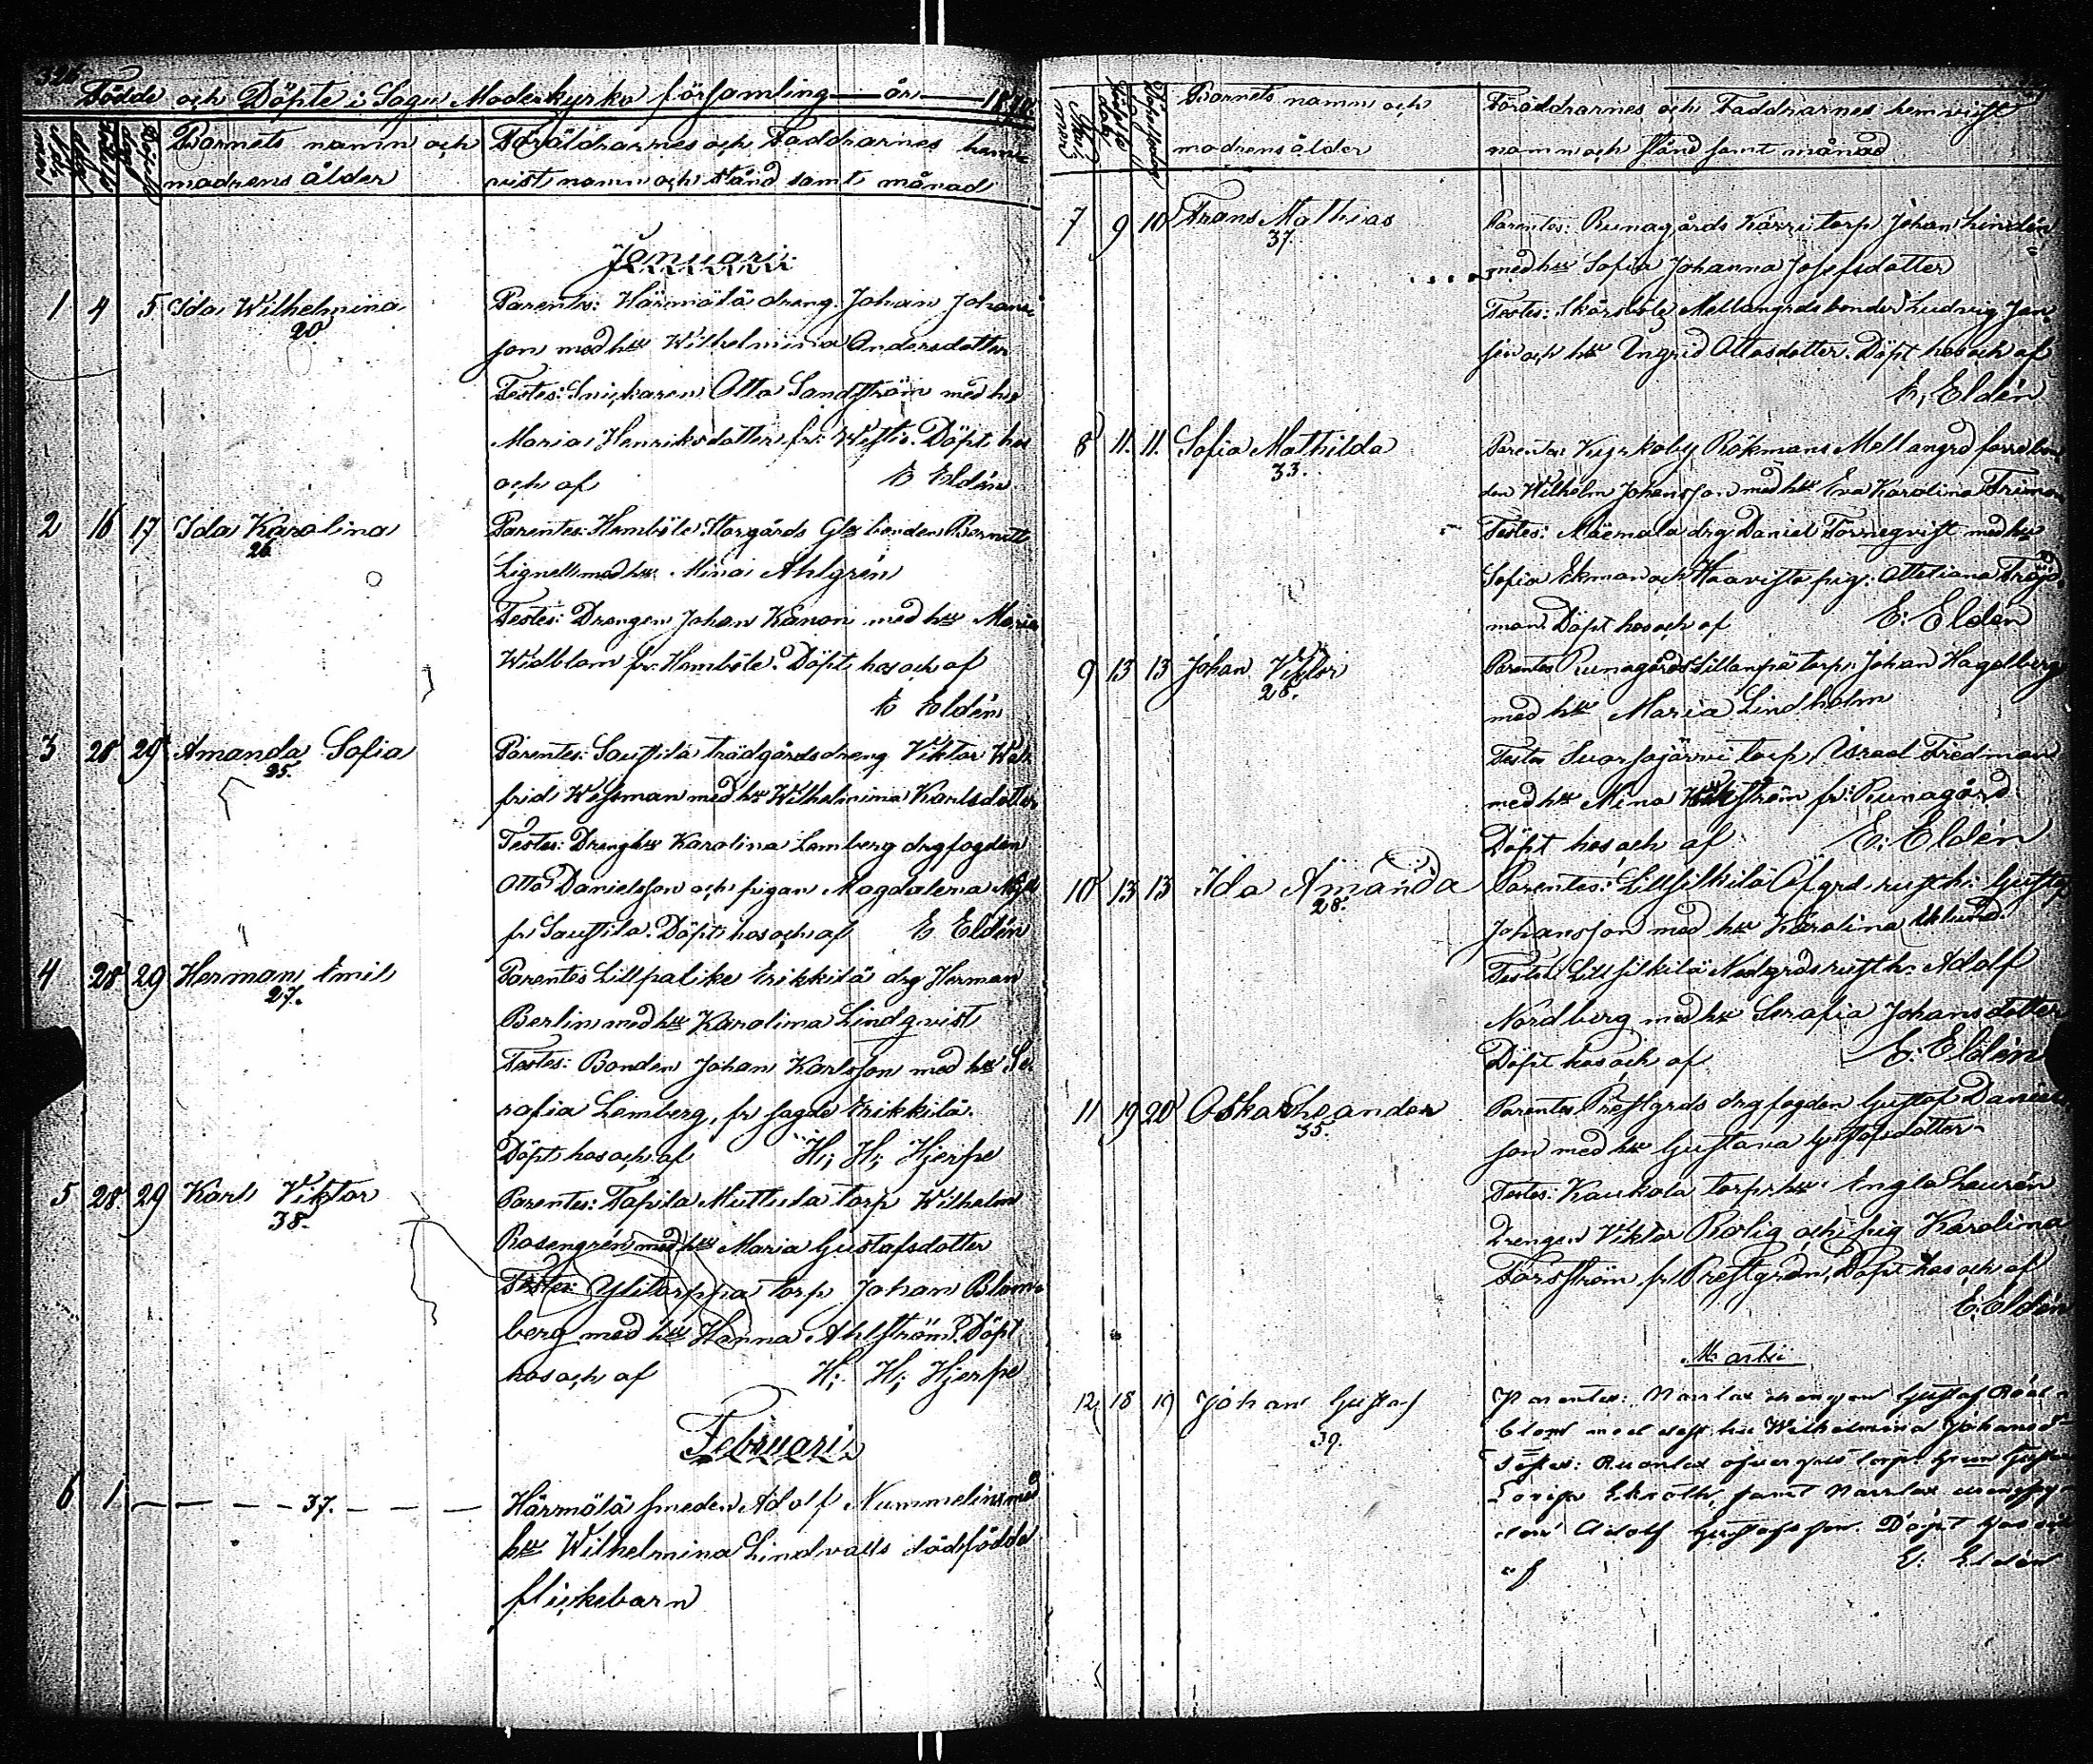 326
Födde och Döpte i Sagu Moderkyrko församling år 1870.
Barnets namn och Föräldrarnes och Faddrarnes hem-
modrens ålder vist namn och stånd samt månad
Januari
1 4 5 Ida Wilhelmina Parentes: Härmälä dreng Johan Johans-
20. son med hu Wilhelmina Andersdotter
Testes: Snickaren Otto Sandström med hu
Maria Henriksdotter fr: Döpt hos
och af E Eldén
2 16 17 Ida Karolina Parentes: Hemböle Storgårds bonden
26 Lignell med hu Mina Ahlgrén
Testes: Drengen Johan Kanon med hu Maria
Widblom fr: Hemböle. Döpt hos och af
E Eldén
3 28 29 Amanda Sofia Parentes: Saustila trädgårdsdreng Viktor Wal-
25. frid Wessman med hu Wilhelmina Karlsdotter
Testes: Drenghu Karolina Lemberg drgfogden
Otto Danielsson och pigan Magdalena
fr Saustila. Döpt hos och af E Eldén
4 28 29 Herman Emil Parentes Lillpalike Erikkilä drg Herman
27. Berlin med hu Karolina Lindqvist
Testes: Bonden Johan Karlsson med hu Se-
rafia Lemberg, fr sagde Erikkilä.
Döpt hos och af H: H: Hjerpe
5 28 29 Karl Viktor Parentes: Tapila Muttila torp Wilhelm
38. Rosengrén med hu Maria Gustafsdotter
Testes: Ylitorppa torp Johan Blom-
berg med hu Hanna Ahlström. Döpt
hos och af H: H: Hjerpe
Februari
6 1 — — — 37. — — Härmälä smeden Adolf Nummelins med
hu Wilhelmina Lindvalls dödfödde
flickebarn
Barnets namn och Föräldrarnes och Faddrarnes hemvist
modrens ålder namn och stånd samt månad
7 9 10 Frans Mathias Parentes: Runagårds Kärri torp Johan Lindén
37. med hu Sofia Johanna Josefsdotter
Testes: Skärsböle Mellangrds bonden Ludvig Jan-
sén och hu Ingrid Ottosdotter. Döpt hos och af
E, Eldén
8 11. 11. Sofia Mathilda Parentes Kyrkoby Rökmans Mellangrd förre bon-
33. den Wilhelm Johansson med hu Eva Karolina Friman
Testes: Mäemala drg Daniel Törneqvist med hu
Sofia Ekman och Haavisto pig: Ottetiana Fröjd-
man. Döpt hos och af E: Eldén
9 13 13 Johan Viktor Parentes Runagårds Lillanpä torp: Johan Hagelberg
28. med hu Maria Lindholm
Testes Suorsajärvi torp, Israel Fredman
med hu Mina fr: Runagård.
Döpt hos och af E: Eldén
10 13 13 Ida Amanda Parentes: Lillsilkilä Öfgrd rusth: Gustaf
28. Johansson med hu Karolina Eklund.
Testes: Lillsilkilä Nedgrds rusth: Adolf
Nordberg med hu Serafia Johansdotter
Döpt hos och af E: Eldén
11 19 20 Oskar Leander Parentes Prestgrds drgfogden Gustaf Daniels-
35. son med hu Gustava Gustafsdotter
Testes: Kaukola torp:hu Engla Laurén
Drengen Viktor Rolig och pig Karolina
Forsström fr Prestgrdn, Döpt hos och af
E: Eldén
Martii
12 18 19 Johan Gustaf Parentes: Narrlax drengen Gustaf
39. blom med dess hu Wilhelmina Johansd-
Testes: Ruonlax öfvergrds torp:
Lovisa Ekroth, samt Narrlax
Adolf Gustafsson. Döpt hos och
af E: Eldén